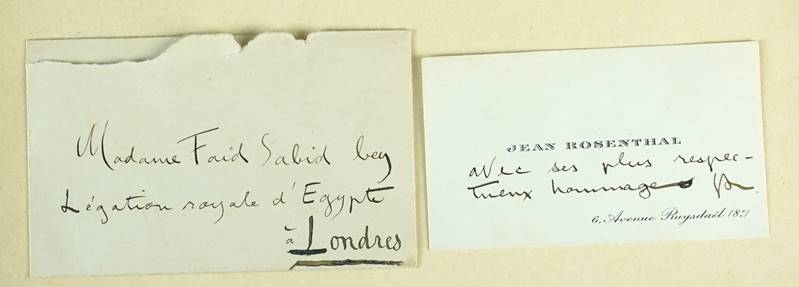 Madame Faid Sabid bey
Légation royale d'Egypte
à Londres
JEAN ROSENTHAL
avec ses plus respec-
tueux hommages JR.
6, Avenue Ruysdaël (8e)